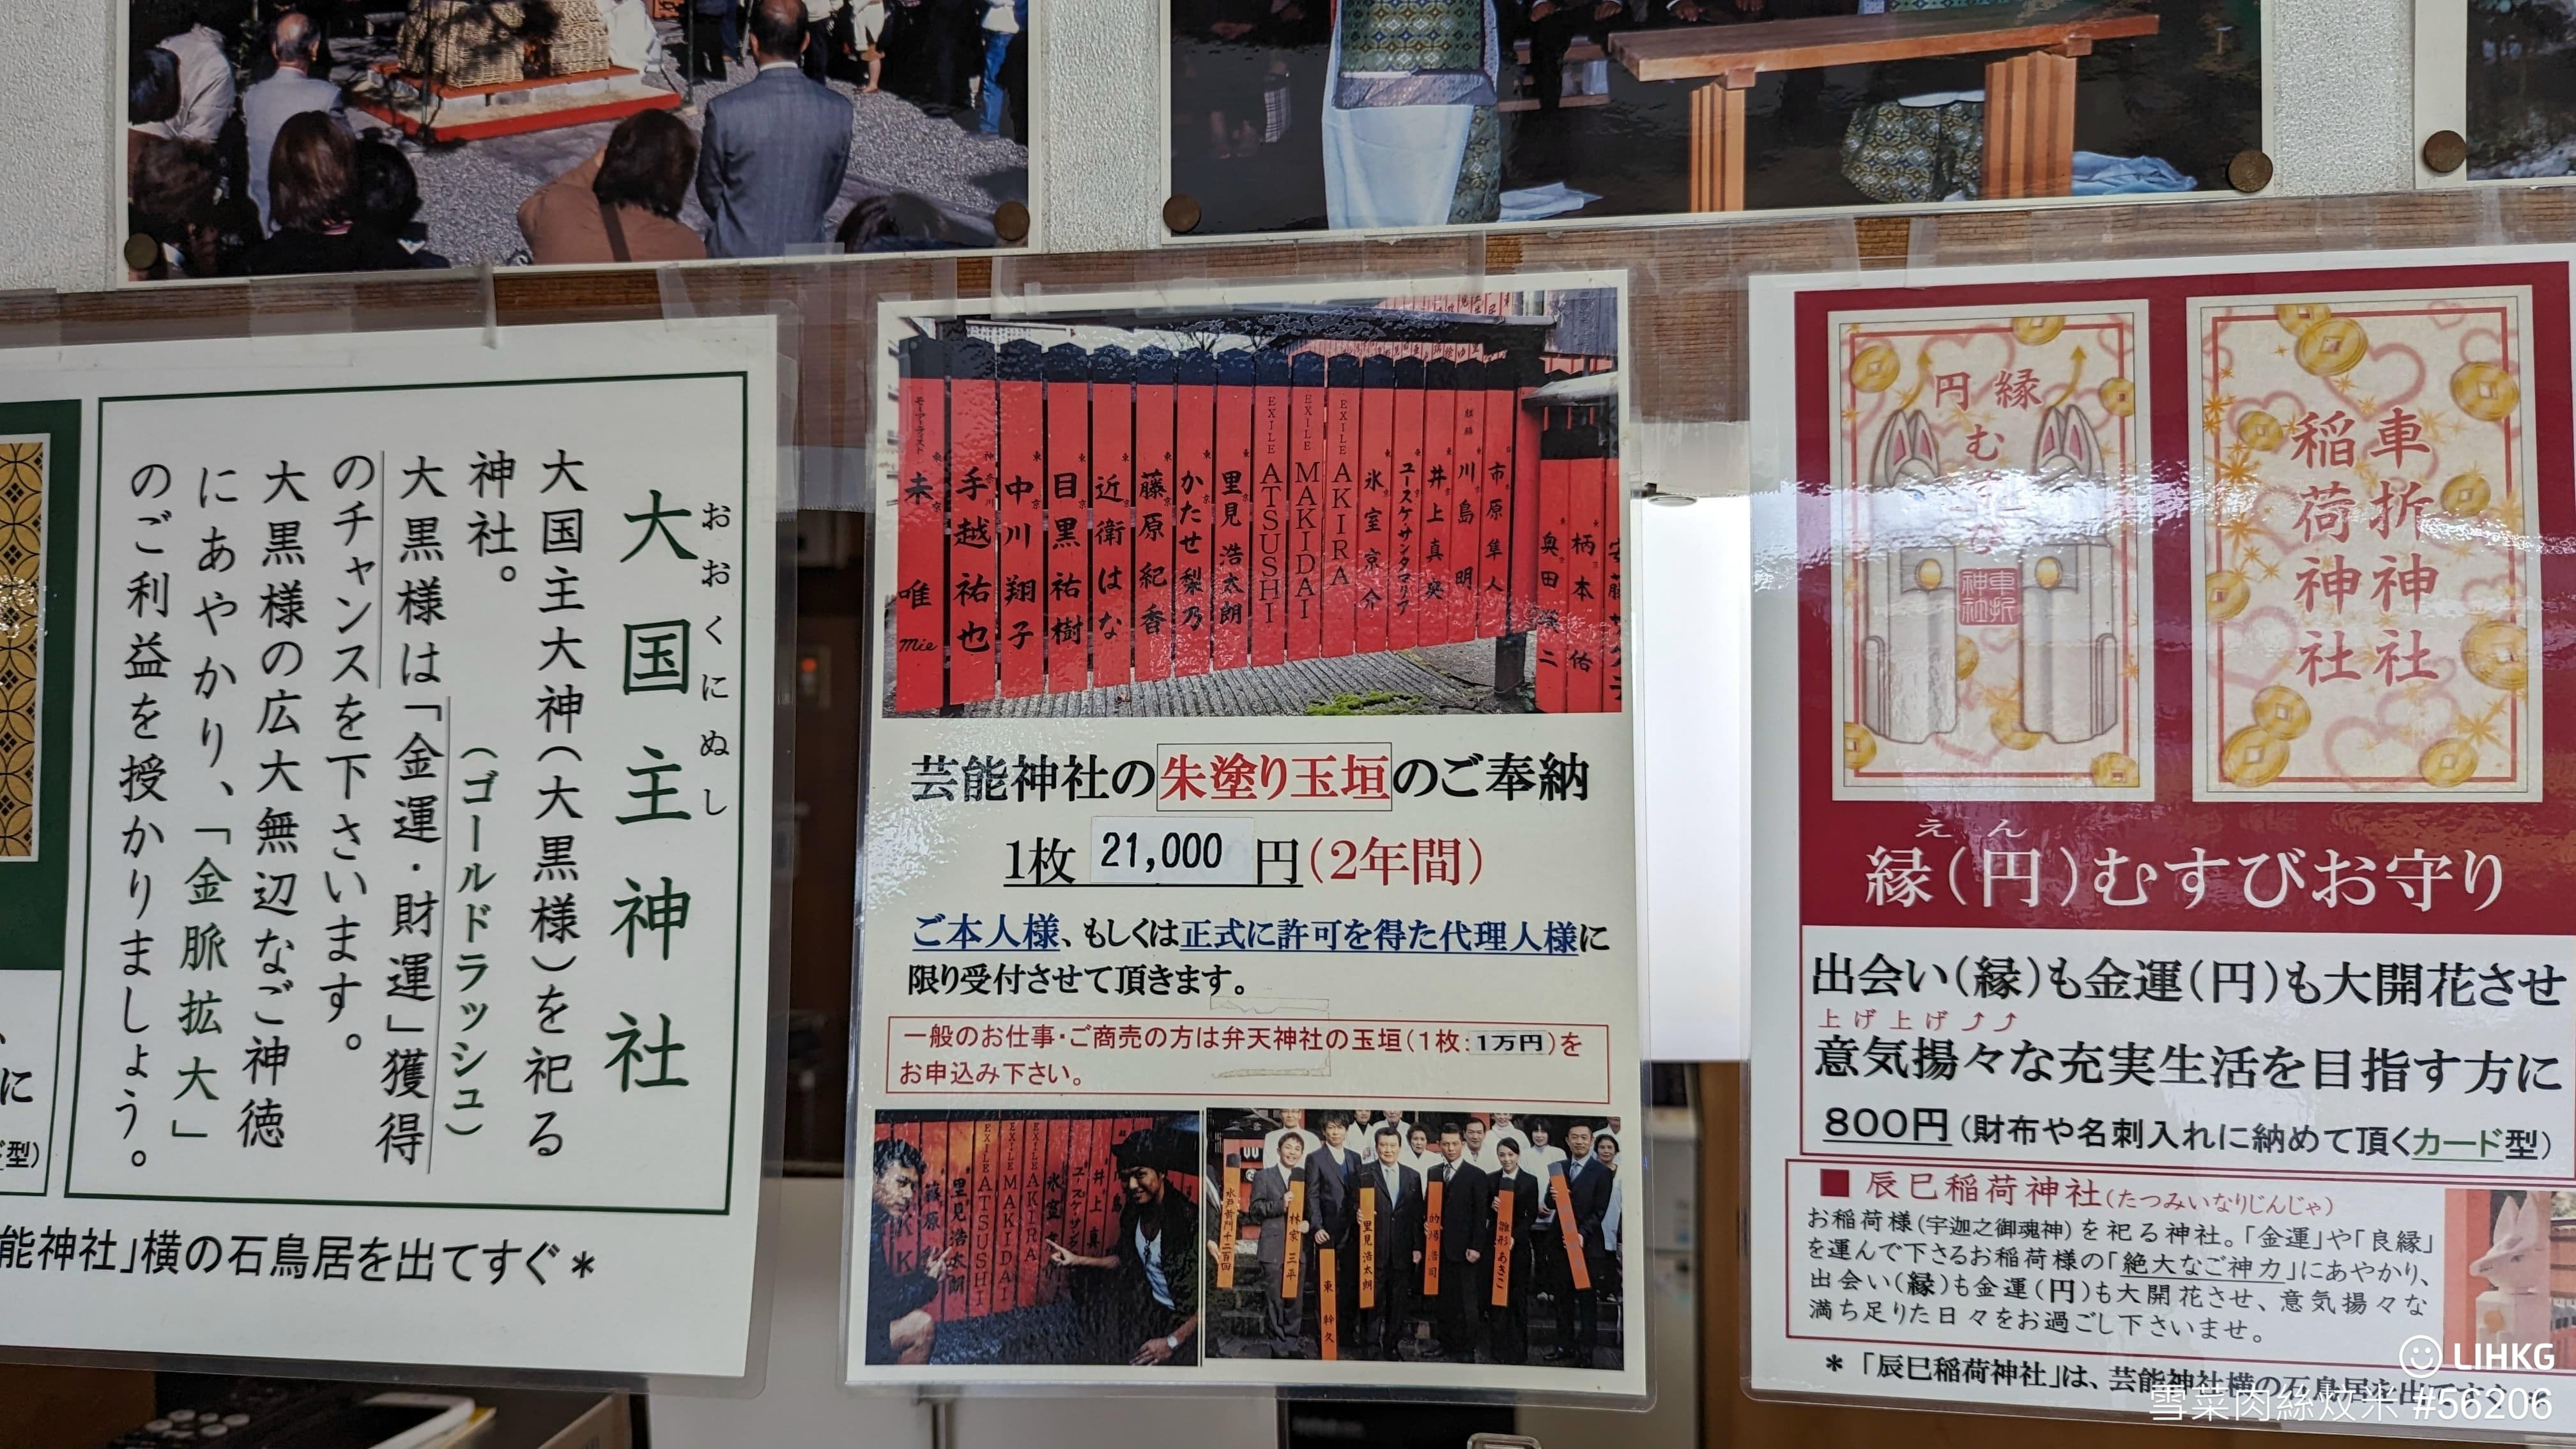 大国主神社
おおくにぬし
大国主大神(大黒様)を祀る
神社。
大黒様は「金運・財運」獲得
(ゴールドラッシュ)
のチャンスを下さいます。
大黒様の広大無辺なご神徳
にあやかり、「金脈拡大」
のご利益を授かりましょう。
能神社」横の石鳥居を出てすぐ*
に
型)
未唯 Mie
手越祐也
中川翔子
目黒祐樹
近衛はな
藤原紀香
かたせ梨乃
里見浩太朗
EXILE ATSUSHI
EXILE MAKIDAI
EXILE AKIRA
氷室京介
ユースケサンタマリア
井上真央
川島明
市原隼人
奥田瑛二
柄本佑
芸能神社の朱塗り玉垣のご奉納
1枚 21,000 円(2年間)
ご本人様、もしくは正式に許可を得た代理人様に
限り受付させて頂きます。
一般のお仕事・ご商売の方は弁天神社の玉垣(1枚:1万円)を
お申込み下さい。
里見浩太朗
EXILE ATSUSHI
EXILE MAKIDAI
EXILE AKIRA
水戸黄門千二百回
林家三平
東幹久
里見浩太朗
的場浩司
雛形あきこ
円縁
むすび
車折神社
車折神社
稲荷神社
えん
縁(円)むすびお守り
出会い(縁)も金運(円)も大開花させ
上げ上げ⤴⤴
意気揚々な充実生活を目指す方に
800円(財布や名刺入れに納めて頂くカード型)
■ 辰巳稲荷神社(たつみいなりじんじゃ)
お稲荷様(宇迦之御魂神)を祀る神社。「金運」や「良縁」
を運んで下さるお稲荷様の「絶大なご神力」にあやかり、
出会い(縁)も金運(円)も大開花させ、意気揚々な
満ち足りた日々をお過ごし下さいませ。
*「辰巳稲荷神社」は、芸能神社横の石鳥居を出てすぐ*
LIHKG
雪菜肉絲炆米 #56206